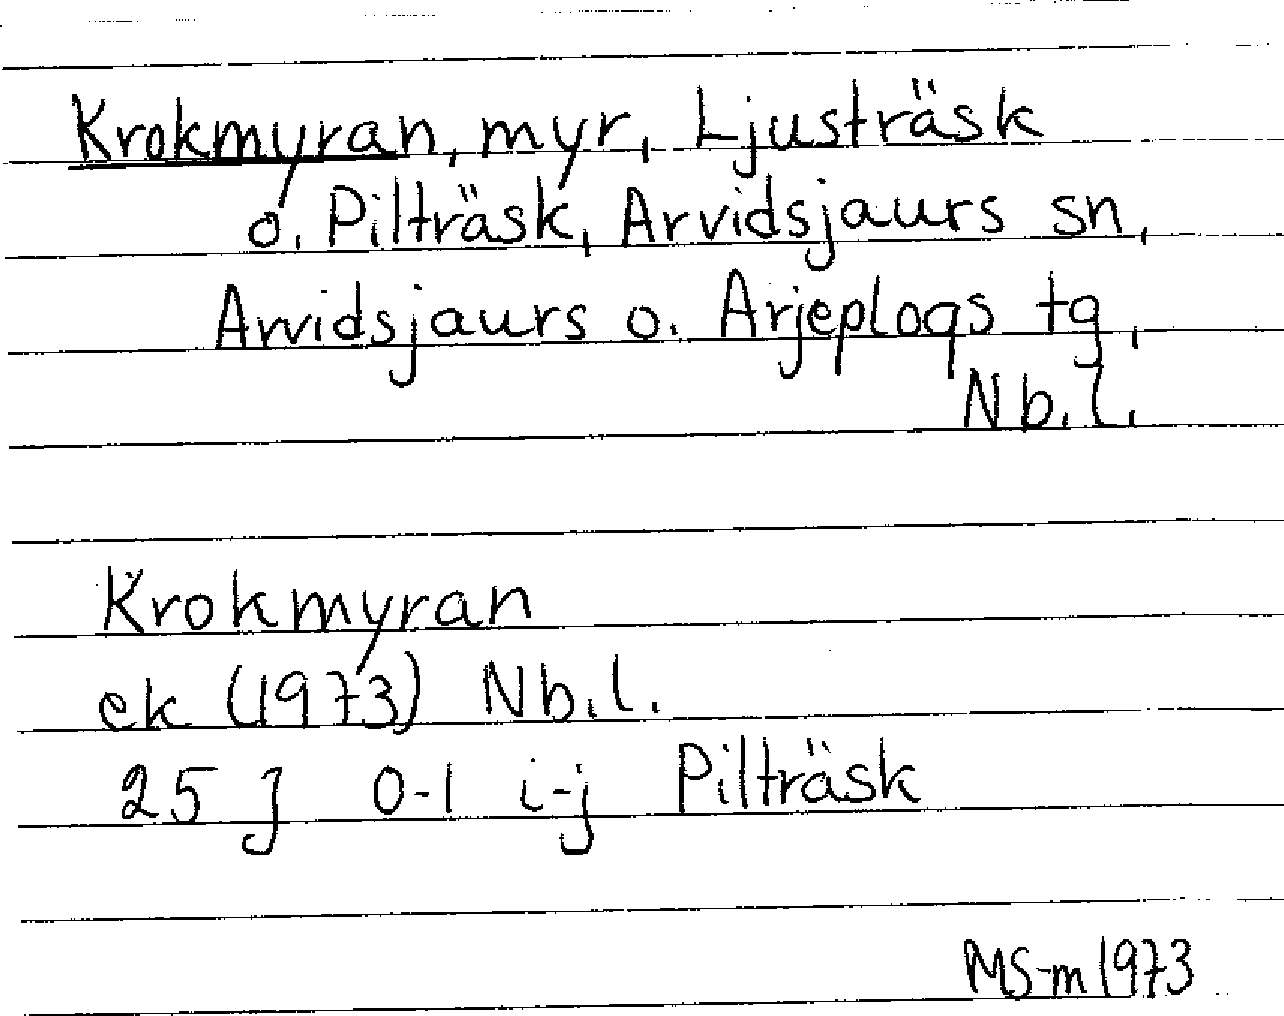 Krokmyran, myr, Ljusträsk
o. Pilträsk, Arvidsjaurs sn,
Arvidsjaurs o. Arjeplogs tg,
Nb. l.
Krokmyran
ek (1973) Nb. l.
25 J 0-1 i-j Pilträsk
MS-m 1973